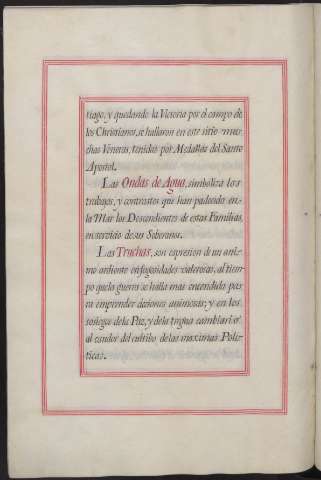 tiago, y quedando la Victoria por el campo de
los Christianos, se hallaron en este sitio mu-
chas Veneras, tenidas por Medallas del Santo
Apostol.
Las Ondas de Agua, simboliza los
trabajos, y contrastes que han padecido en
la Mar los Descendientes de estas Familias,
en servicio de sus Soberanos.
Las Truchas, son expresion de un ani-
mo ardiente en fogosidades valerosas, al tiem-
po que la guerra se halla mas encendida pa-
ra emprender acciones animosas; y en los
sosiegos de la Paz, y de la tregua cambiar
al candor del cultibo de las maximas Poli-
ticas.